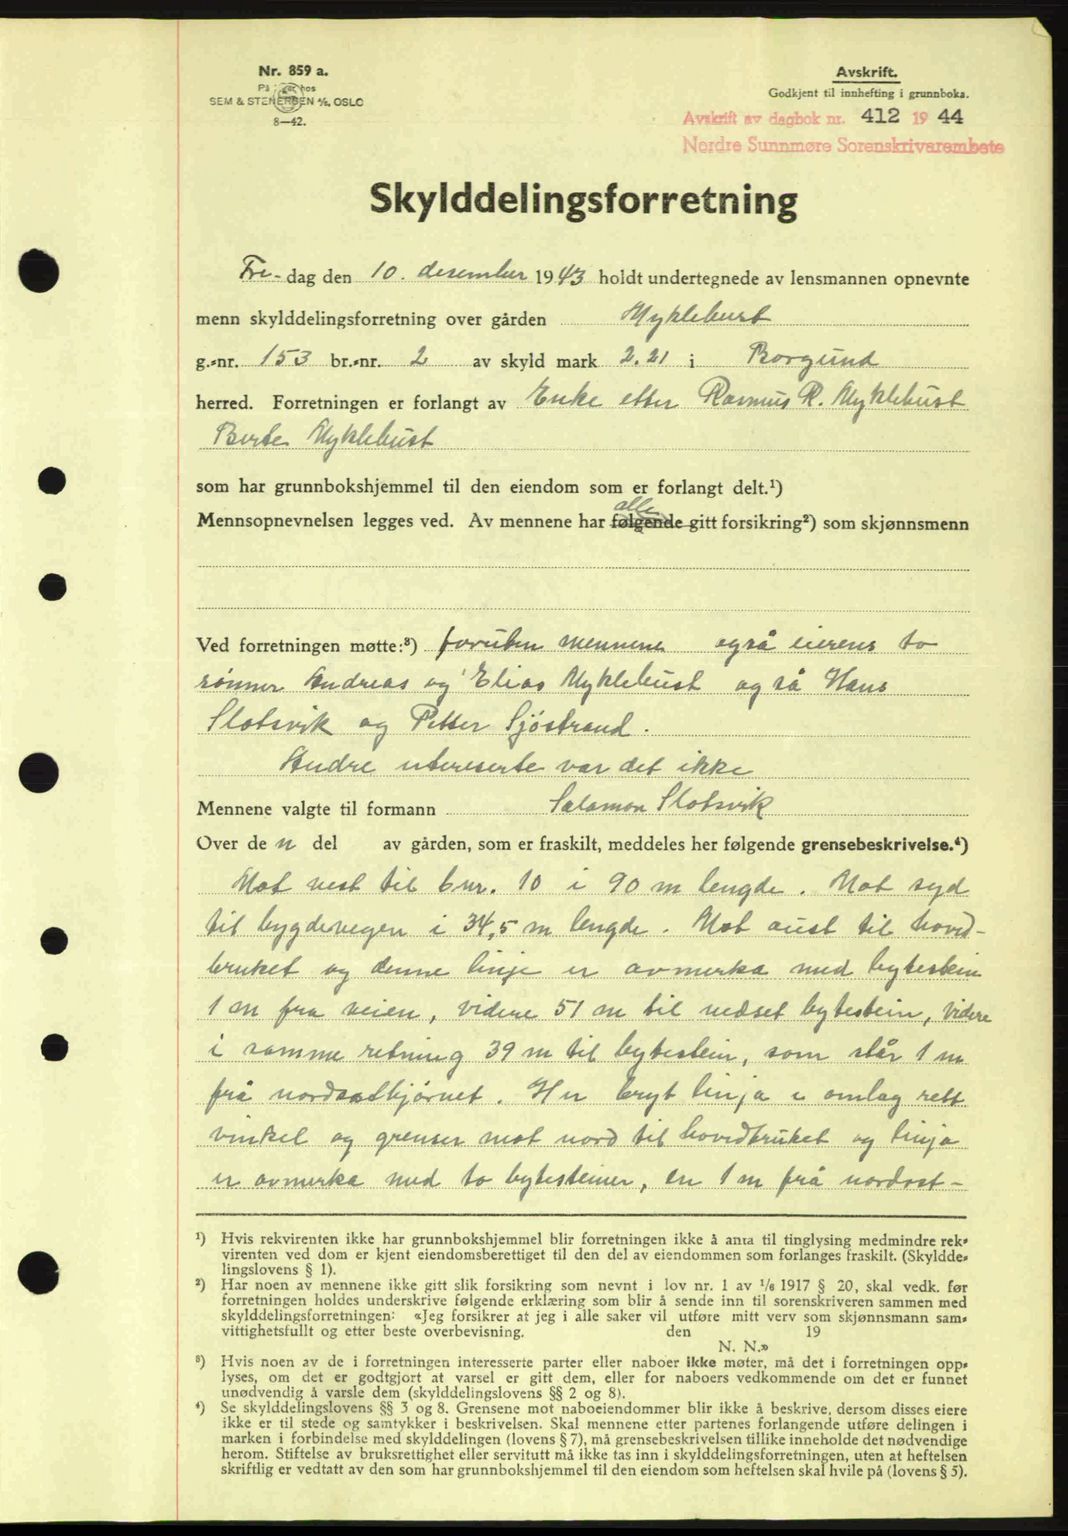 Nr. 859 a.
På lager hos
SEM & STENERSEN A/S, OSLO
8—42.
Avskrift.
Godkjent til innhefting i grunnboka.
Avskrift av dagbok nr. 412 1944
Nordre Sunnmøre Sorenskrivarembete
Skylddelingsforretning
Fre-dag den 10. desember 1943 holdt undertegnede av lensmannen opnevnte
menn skylddelingsforretning over gården Myklebust
g.-nr. 153 br.-nr. 2 av skyld mark 2.21 i Borgund
herred. Forretningen er forlangt av Enke etter Rasmus R. Myklebust
Berte Myklebust
som har grunnbokshjemmel til den eiendom som er forlangt delt.¹)
alle
Mennsopnevnelsen legges ved. Av mennene har følgende gitt forsikring²) som skjønnsmenn
Ved forretningen møtte:³) foruten mennene også eierens to
sønner Andreas og Elias Myklebust og så Hans
Slotsvik og Petter Sjöstrand.
Andre interesserte var det ikke
Mennene valgte til formann Salamon Slotsvik
Over de n del av gården, som er fraskilt, meddeles her følgende grensebeskrivelse.⁴)
Mot vest til bnr. 10 i 90 m lengde. Mot syd
til bygdevegen i 34,5 m lengde. Mot aust til hovid-
bruket og denne linje er avmerka med bytestein
1 m fra veien, videre 51 m til nedset bytestein, videre
i samme retning 39 m til bytestein, som står 1 m
frå nordasthjørnet. Her bryt linja i omlag rett
vinkel og grenser mot nord til hovidbruket og linja
er avmerka med to bytesteiner, en 1 m frå nordost-
¹) Hvis rekvirenten ikke har grunnbokshjemmel blir forretningen ikke å anta til tinglysing medmindre rek-
virenten ved dom er kjent eiendomsberettiget til den del av eiendommen som forlanges fraskilt. (Skyldde-
lingslovens § 1).
²) Har noen av mennene ikke gitt slik forsikring som nevnt i lov nr. 1 av 1/6 1917 § 20, skal vedk. før
forretningen holdes underskrive følgende erklæring som blir å sende inn til sorenskriveren sammen med
skylddelingsforretningen: «Jeg forsikrer at jeg i alle saker vil utføre mitt verv som skjønnsmann sam-
vittighetsfullt og etter beste overbevisning. den 19
N. N.»
³) Hvis noen av de i forretningen interesserte parter eller naboer ikke møter, må det i forretningen opp-
lyses, om det er godtgjort at varsel er gitt dem, eller for naboers vedkommende om det er funnet
unødvendig å varsle dem (skylddelingslovens §§ 2 og 8).
⁴) Se skylddelingslovens §§ 3 og 8. Grensene mot naboeiendommer blir ikke å beskrive, dersom disses eiere
ikke er til stede og samtykker i beskrivelsen. Skal mennene etter partenes forlangende utføre delingen i
marken i forbindelse med skylddelingen (lovens § 7), må grensebeskrivelsen tillike inneholde det nødvendige
herom. Stiftelse av bruksrettighet eller servitutt må ikke tas inn i skylddelingsforretningen, uten at heftelsen
skriftlig er vedtatt av den som har grunnbokshjemmel til den eiendom som heftelsen skal hvile på (lovens § 5).